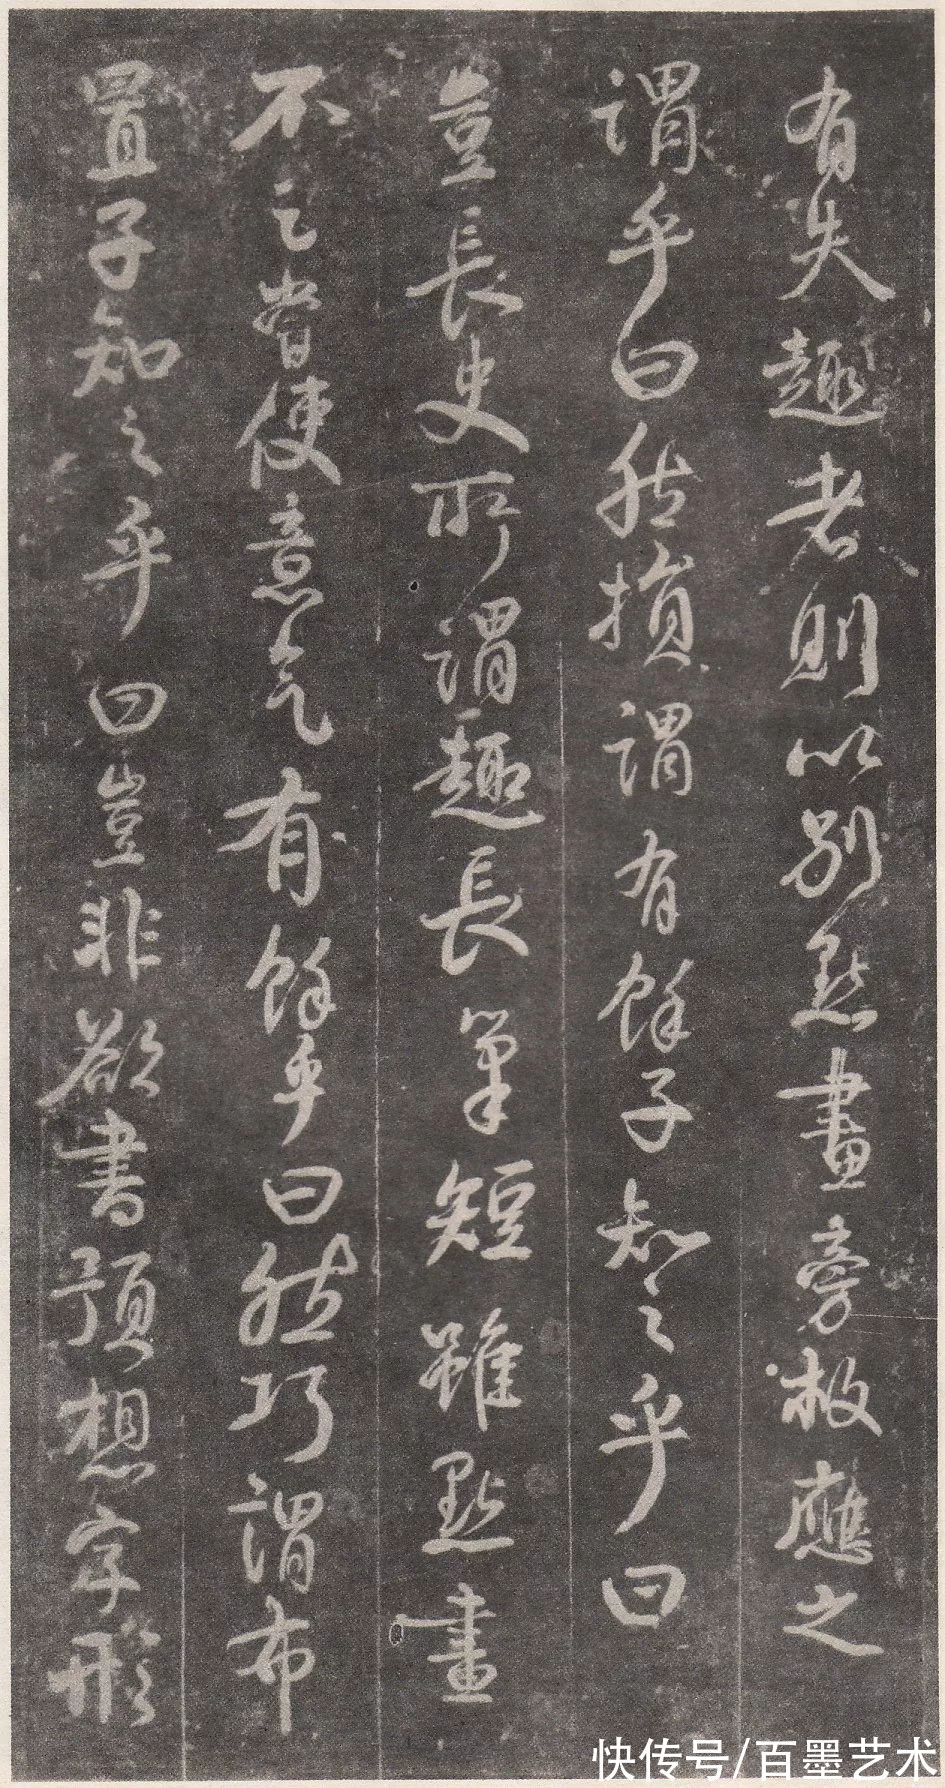 有失趣者則以別點畫旁救應之
謂乎曰然損謂有餘子知之乎曰
豈長史所謂趣長筆短雖點畫
不足常使意氣有餘乎曰然巧謂布
置子知之乎曰豈非欲書預想字形
快传号/百墨艺术